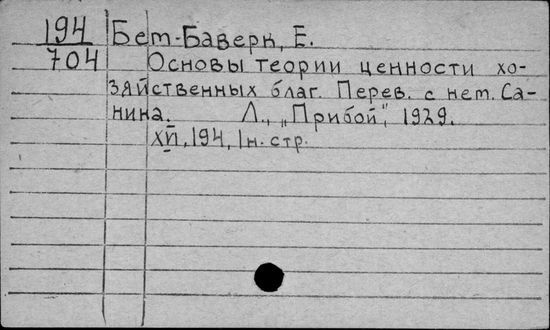 194 Бем-Баверк, Е.
704 Основы теории ценности хо-
зяйственных благ. Перев. с нем. Са-
нина. Л., „Прибой", 1929.
XVI, 194, 1н. стр.